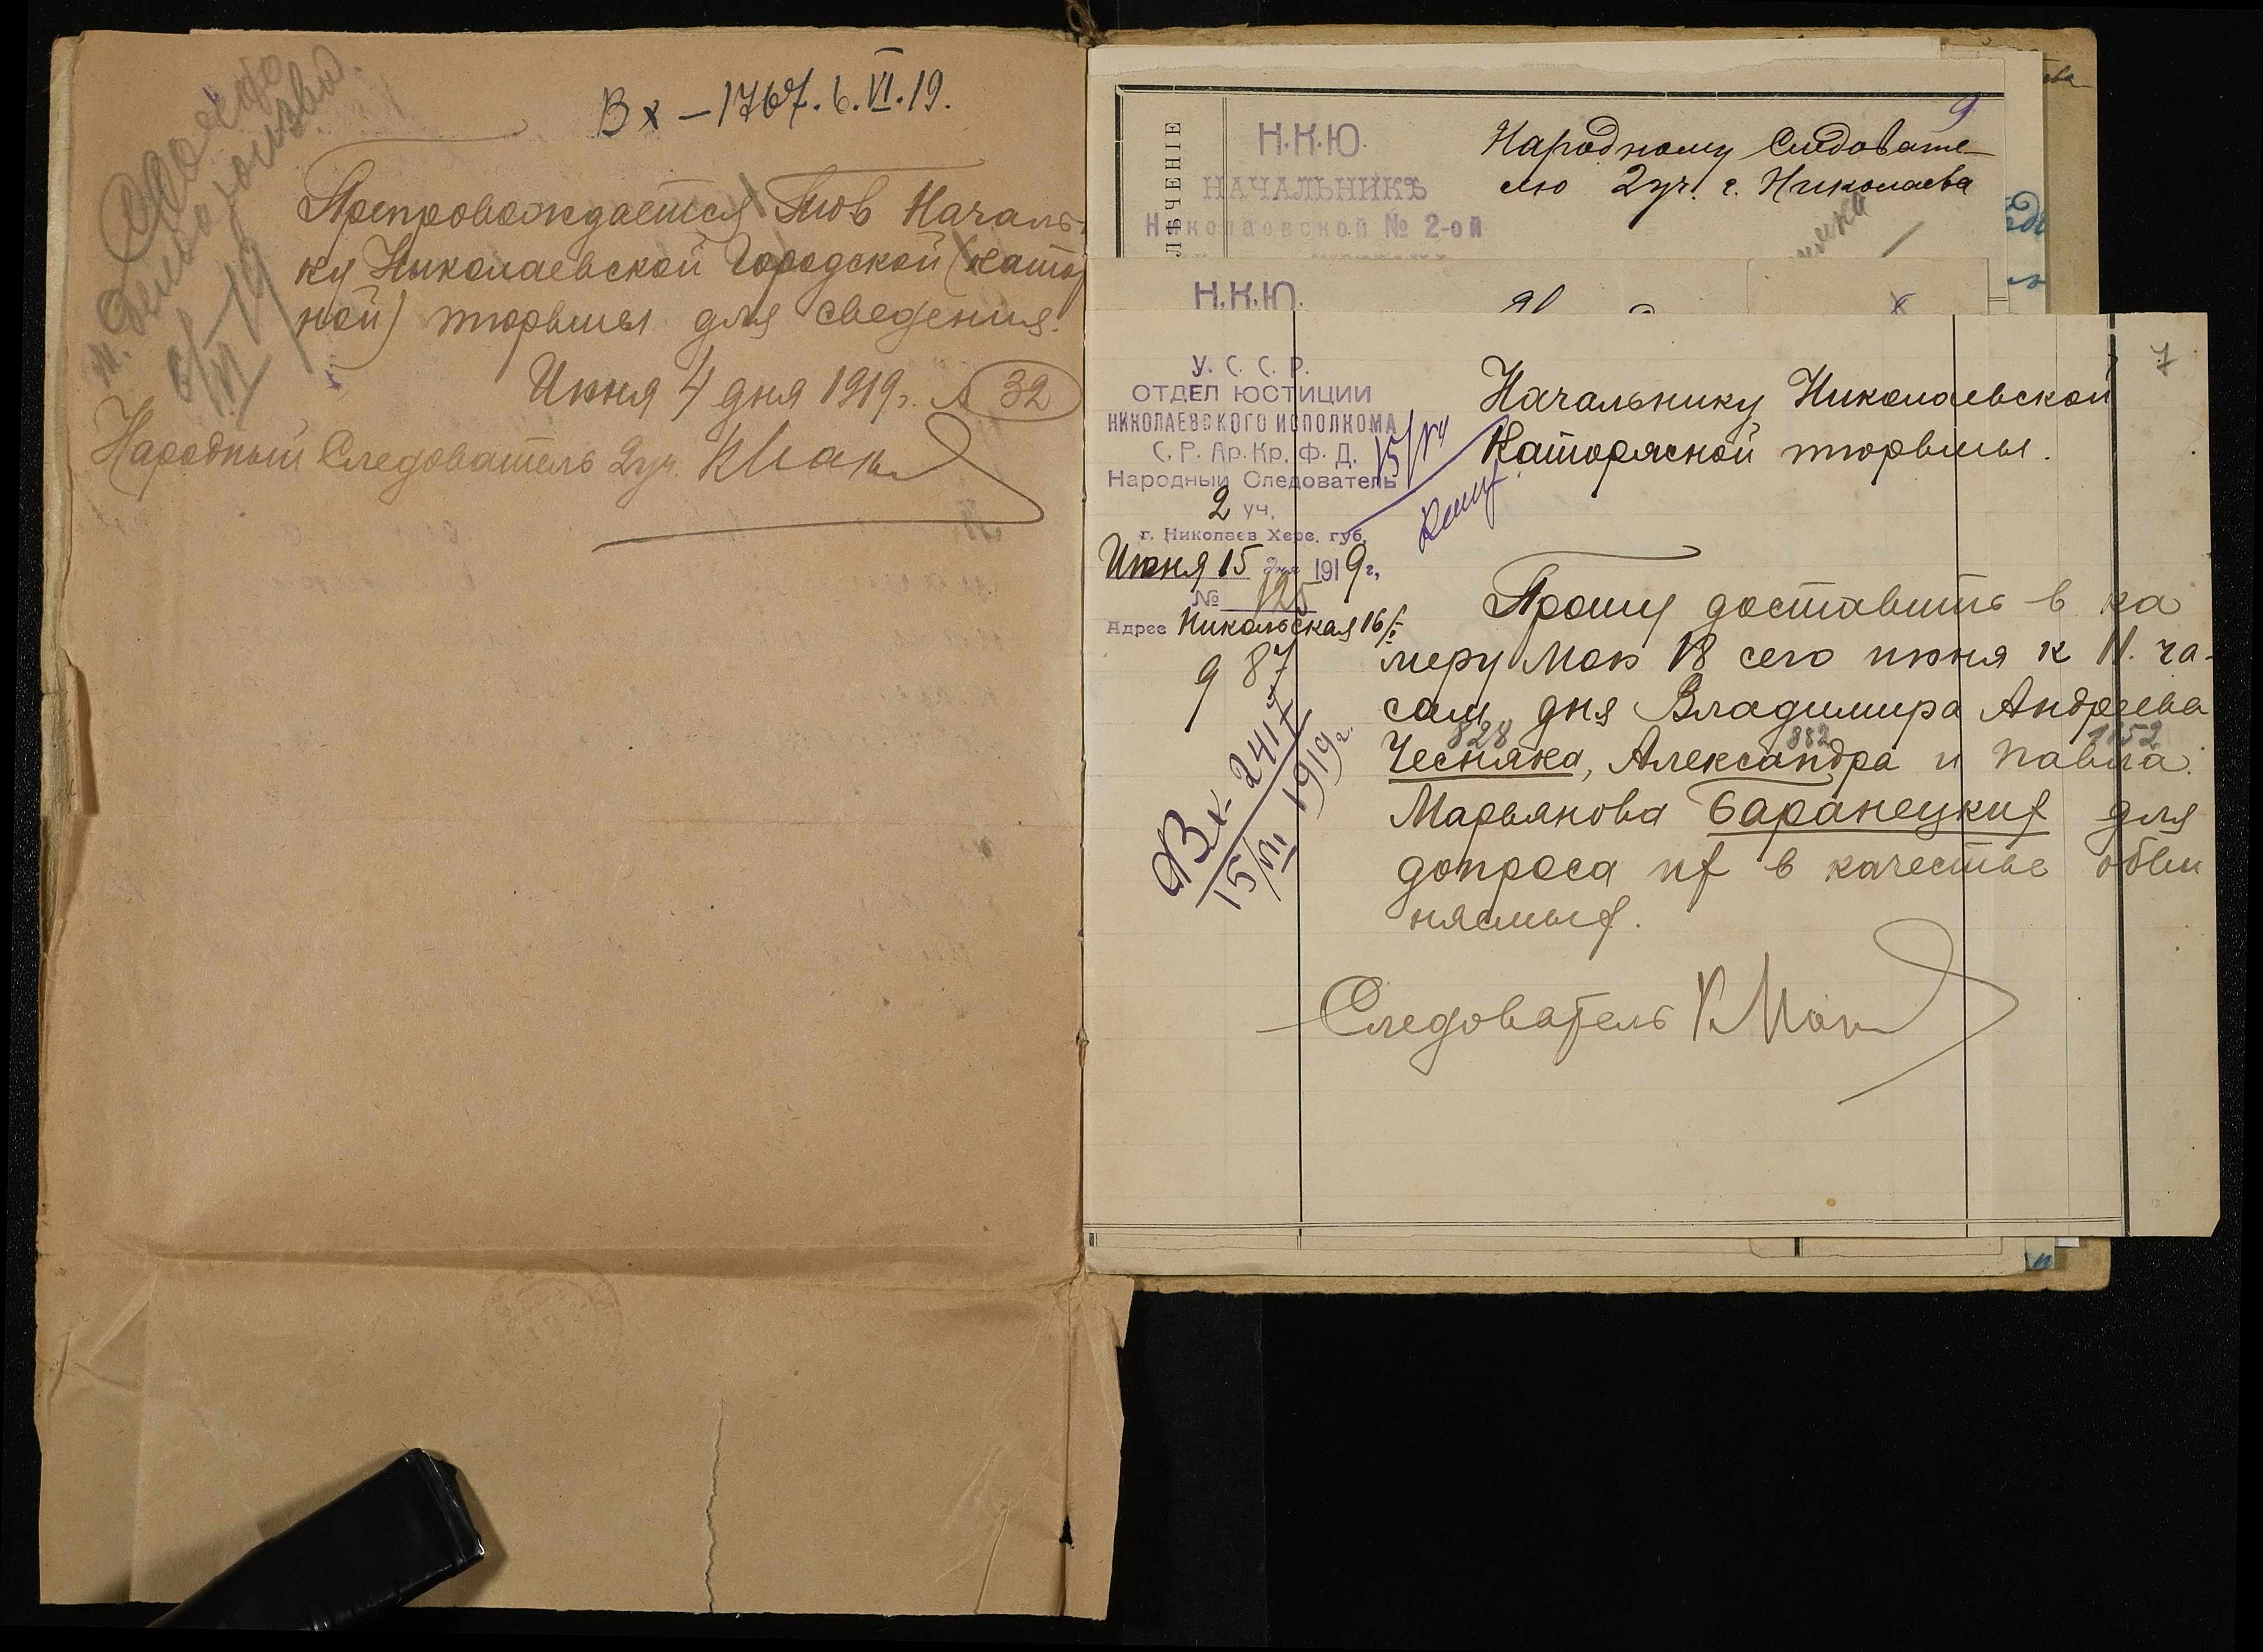 Вх – 1767. 6. VI. 19.
Препровождается Тов Началь-
ку Николаевской Городской (катор
ной) тюрьмы для сведения.
Июня 4 дня 1919 г. № 32
Народный Следователь 2 уч. К Мак
к делопроизвод.
6/VI 19
ЛѢЧЕНІЕ
Н.К.Ю.
НАЧАЛЬНИКЪ
Николаевской № 2-ой
9
Народному Следовате-
лю 2 уч. г. Николаева
Н.К.Ю.
7
У. С. С. Р.
ОТДЕЛ ЮСТИЦИИ
НИКОЛАЕВСКОГО ИСПОЛКОМА
С. Р. Ар. Кр. Ф. Д.
Народный Следователь
2 уч.
г. Николаев Херс. губ.
Июня 15 дня 1919 г.,
№ 125
Адрес Никольская 16/
987
Вх – 2417
15/VII 1919 г.
Начальнику Николаевской
Каторжной тюрьмы.
Прошу доставить в ка
меру мою 18 сего июня к 11. ча-
сам дня Владимира Андреева
828 882 1152
Чесняка, Александра и Павла
Марьянова Баранецких для
допроса их в качестве обви
няемых.
Следователь К Мак